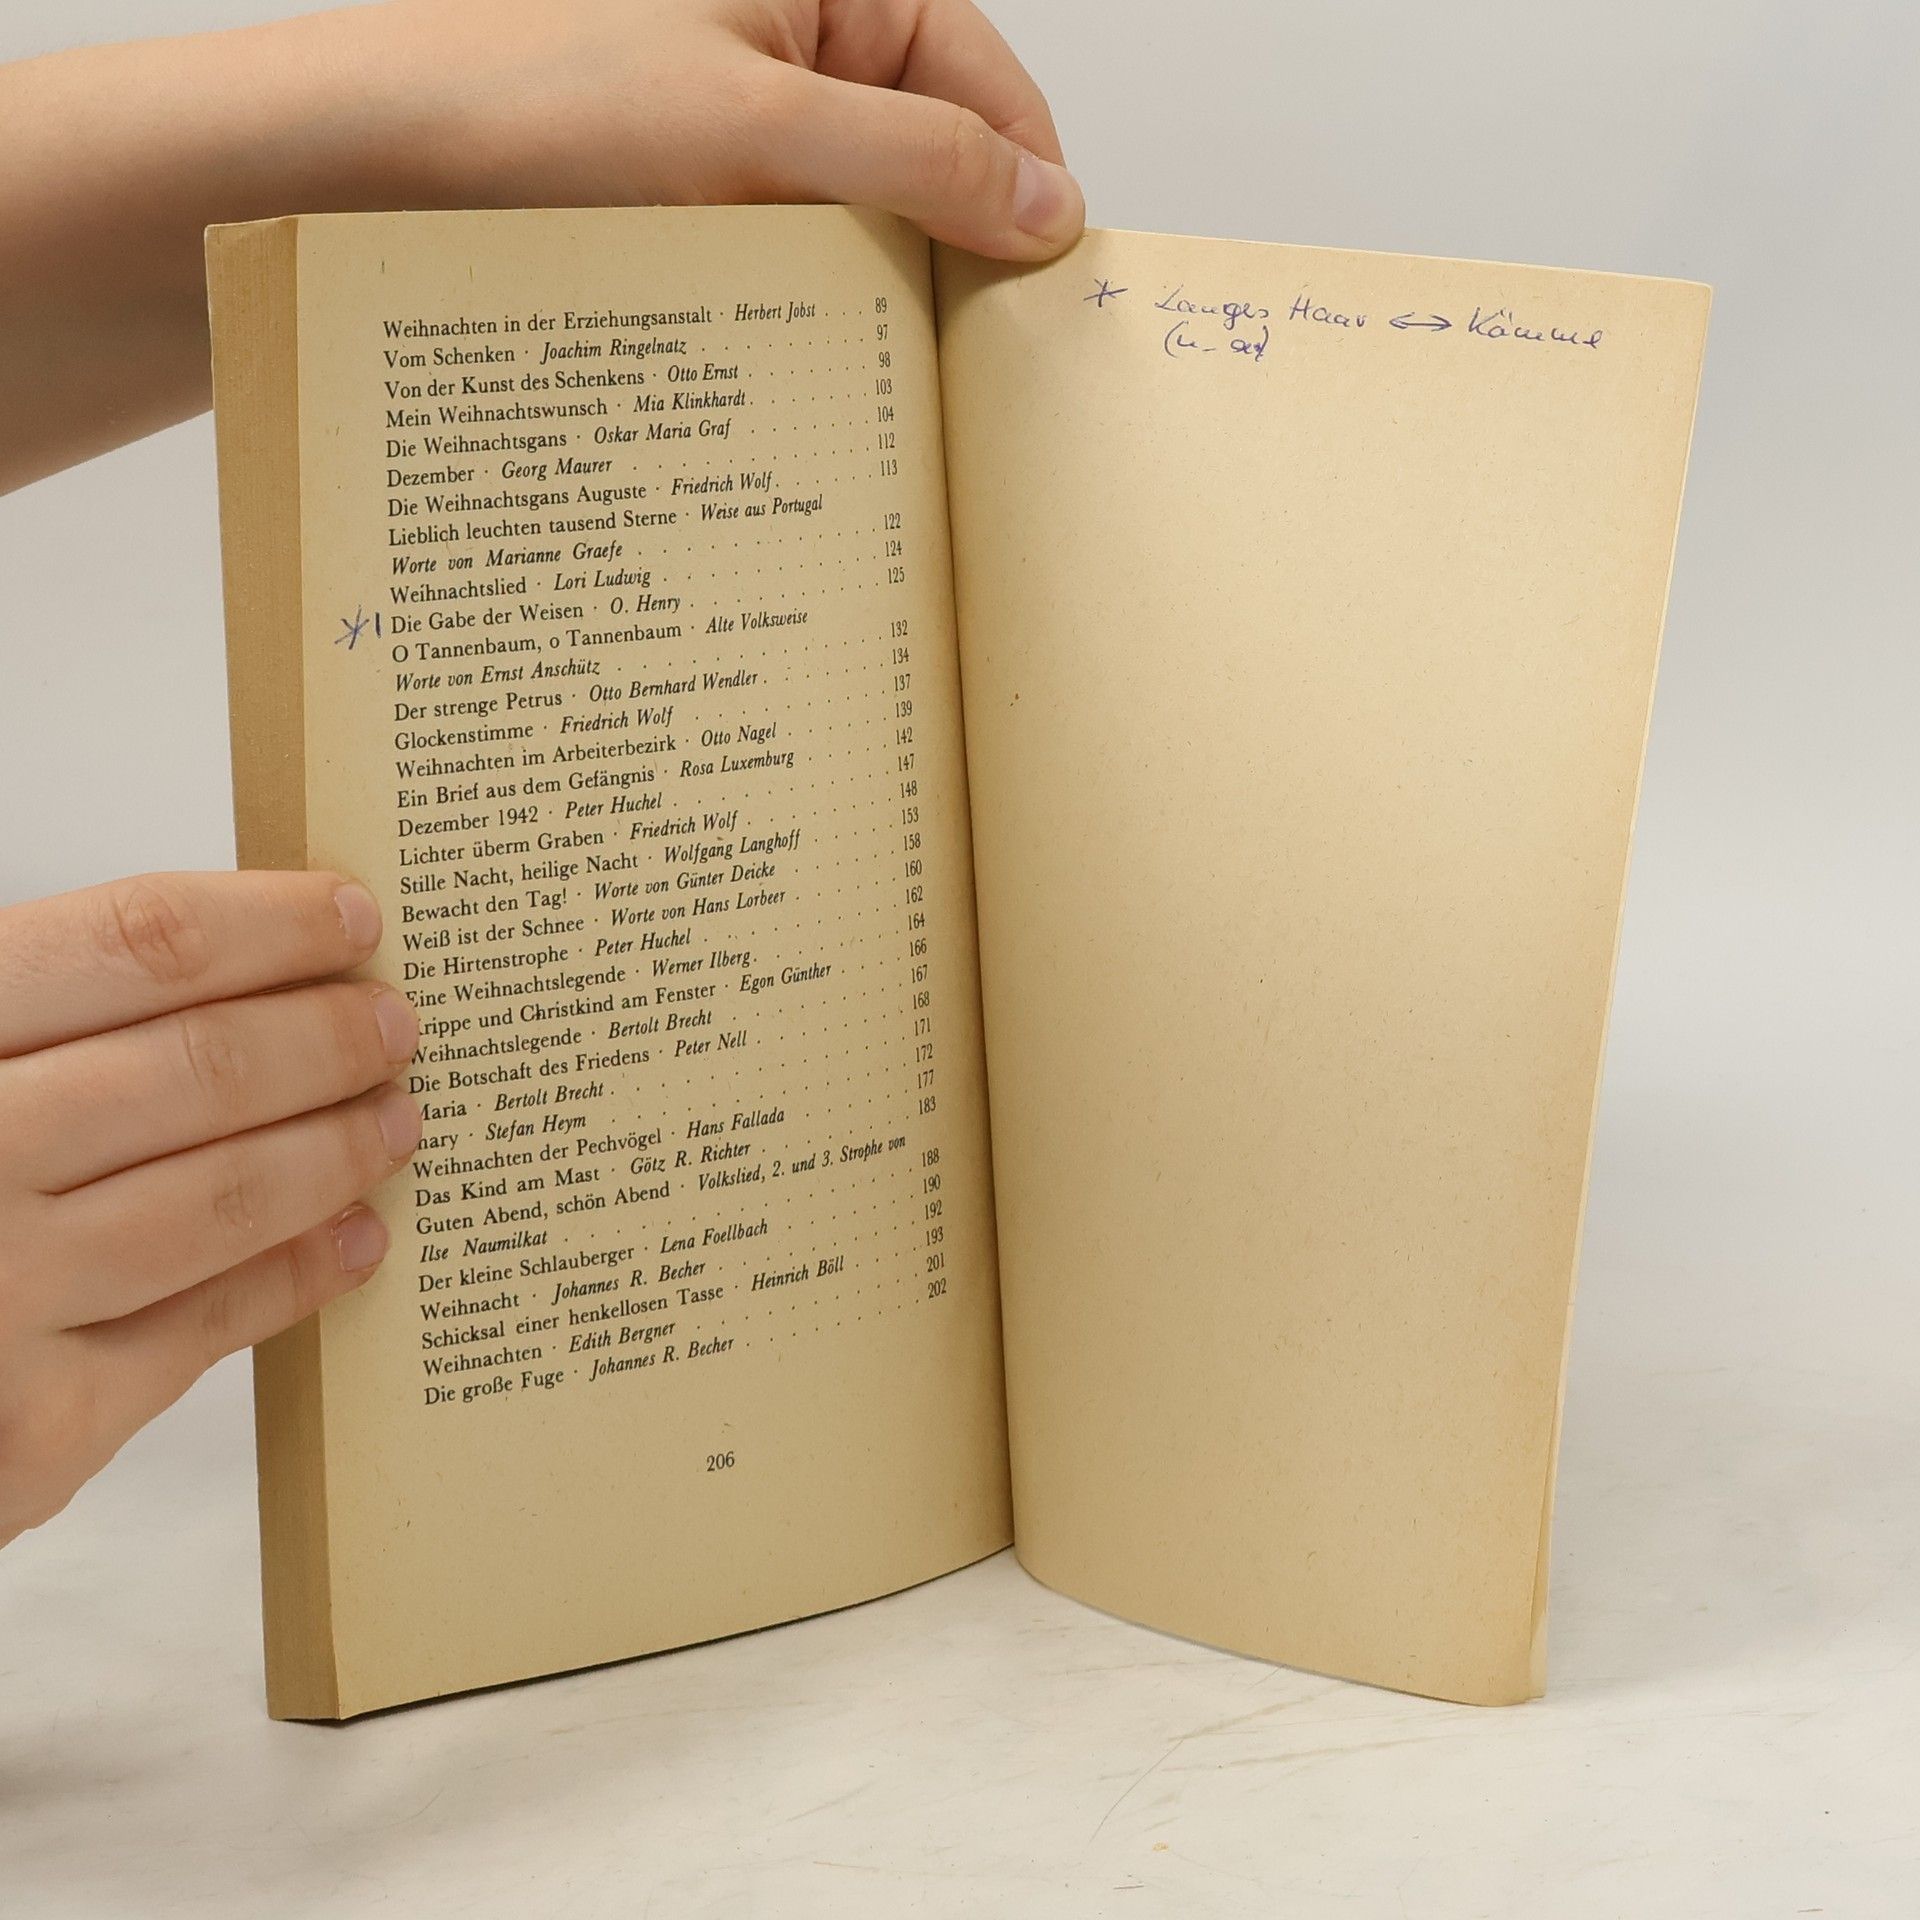 Weihnachten in der Erziehungsanstalt · Herbert Jobst . . . 89
Vom Schenken · Joachim Ringelnatz . . . . . . . 97
Von der Kunst des Schenkens · Otto Ernst . . . . . . . 98
Mein Weihnachtswunsch · Mia Klinkhardt . . . . . . . 103
Die Weihnachtsgans · Oskar Maria Graf . . . . . . 104
Dezember · Georg Maurer . . . . . . . . . . 112
Die Weihnachtsgans Auguste · Friedrich Wolf . . . . . . 113
Lieblich leuchten tausend Sterne · Weise aus Portugal
Worte von Marianne Graefe . . . . . . . . . . 122
Weihnachtslied · Lori Ludwig . . . . . . . . . 124
Die Gabe der Weisen · O. Henry . . . . . . . . . 125
O Tannenbaum, o Tannenbaum · Alte Volksweise
Worte von Ernst Anschütz . . . . . . . . . . 132
Der strenge Petrus · Otto Bernhard Wendler . . . . . . 134
Glockenstimme · Friedrich Wolf . . . . . . . . 137
Weihnachten im Arbeiterbezirk · Otto Nagel . . . . . 139
Ein Brief aus dem Gefängnis · Rosa Luxemburg . . . . . 142
Dezember 1942 · Peter Huchel . . . . . . . . . 147
Lichter überm Graben · Friedrich Wolf . . . . . . . 148
Stille Nacht, heilige Nacht · Wolfgang Langhoff . . . . . 153
Bewacht den Tag! · Worte von Günter Deicke . . . . . 158
Weiß ist der Schnee · Worte von Hans Lorbeer . . . . . 160
Die Hirtenstrophe · Peter Huchel . . . . . . . . 162
Eine Weihnachtslegende · Werner Ilberg . . . . . . . 164
Krippe und Christkind am Fenster · Egon Günther . . . . 166
Weihnachtslegende · Bertolt Brecht . . . . . . . . 167
Die Botschaft des Friedens · Peter Nell . . . . . . . 168
Maria · Bertolt Brecht . . . . . . . . . . . 171
· Stefan Heym . . . . . . . . . . . 172
Weihnachten der Pechvögel · Hans Fallada . . . . . . 177
Das Kind am Mast · Götz R. Richter . . . . . . . 183
Guten Abend, schön Abend · Volkslied, 2. und 3. Strophe von
Ilse Naumilkat . . . . . . . . . . . . 188
Der kleine Schlauberger · Lena Foellbach . . . . . . 190
Weihnacht · Johannes R. Becher . . . . . . . . 192
Schicksal einer henkellosen Tasse · Heinrich Böll . . . . 193
Weihnachten · Edith Bergner . . . . . . . . . 201
Die große Fuge · Johannes R. Becher . . . . . . . 202
206
* Langes Haar ↔ Kämme